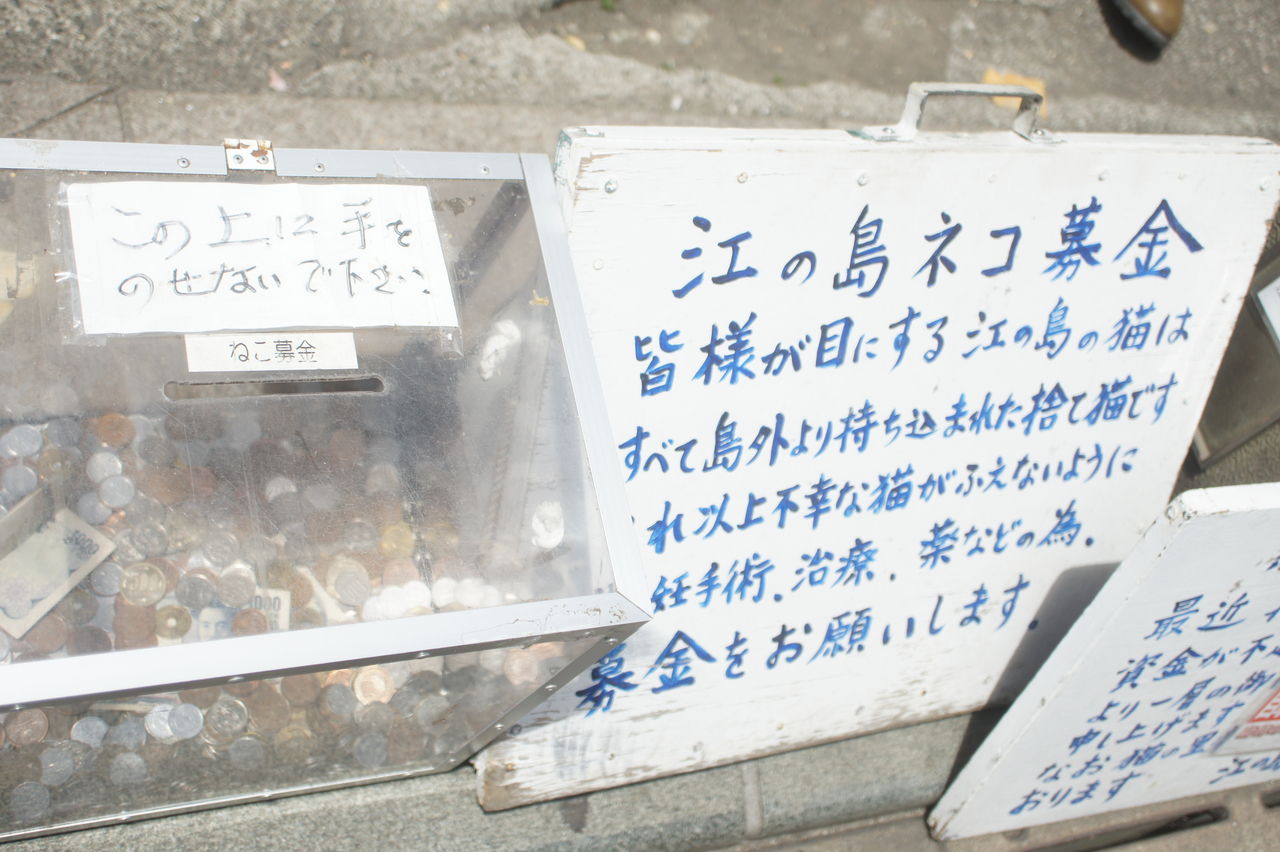 この上に手を
のせないで下さい
ねこ募金
江の島ネコ募金
皆様が目にする江の島の猫は
すべて島外より持ち込まれた捨て猫です
れ以上不幸な猫がふえないように
妊手術.治療.薬などの為.
募金をお願いします.
最近
資金が不
より一層の御
申し上げます
なお猫の里
おります
江の島
1000